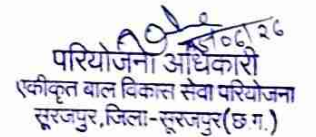 परियोजना अधिकारी
एकीकृत बाल विकास सेवा परियोजना
सूरजपुर,जिला-सूरजपुर(छ.ग.)